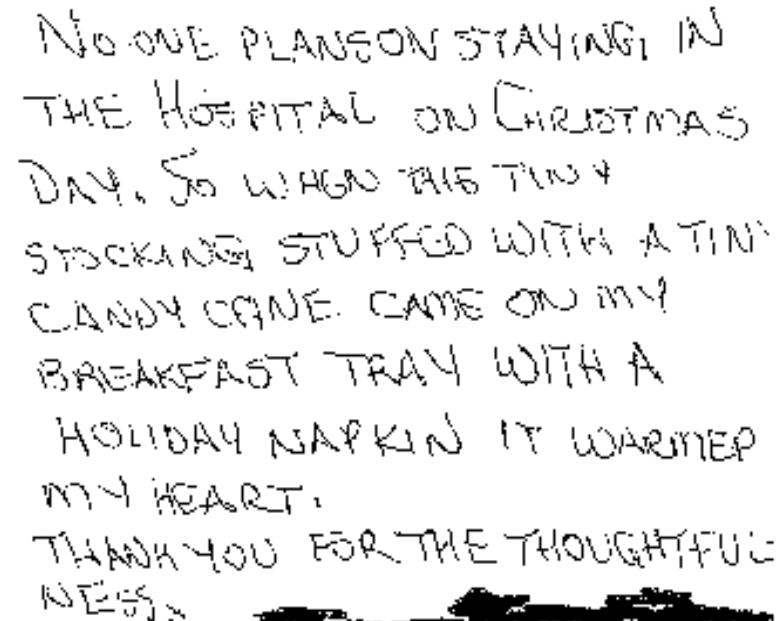 NO ONE PLANS ON STAYING IN
THE HOSPITAL ON CHRISTMAS
DAY. SO WHEN THIS TINY
STOCKING STUFFED WITH A TINY
CANDY CANE CAME ON MY
BREAKFAST TRAY WITH A
HOLIDAY NAPKIN IT WARMED
MY HEART.
THANK YOU FOR THE THOUGHTFUL-
NESS.